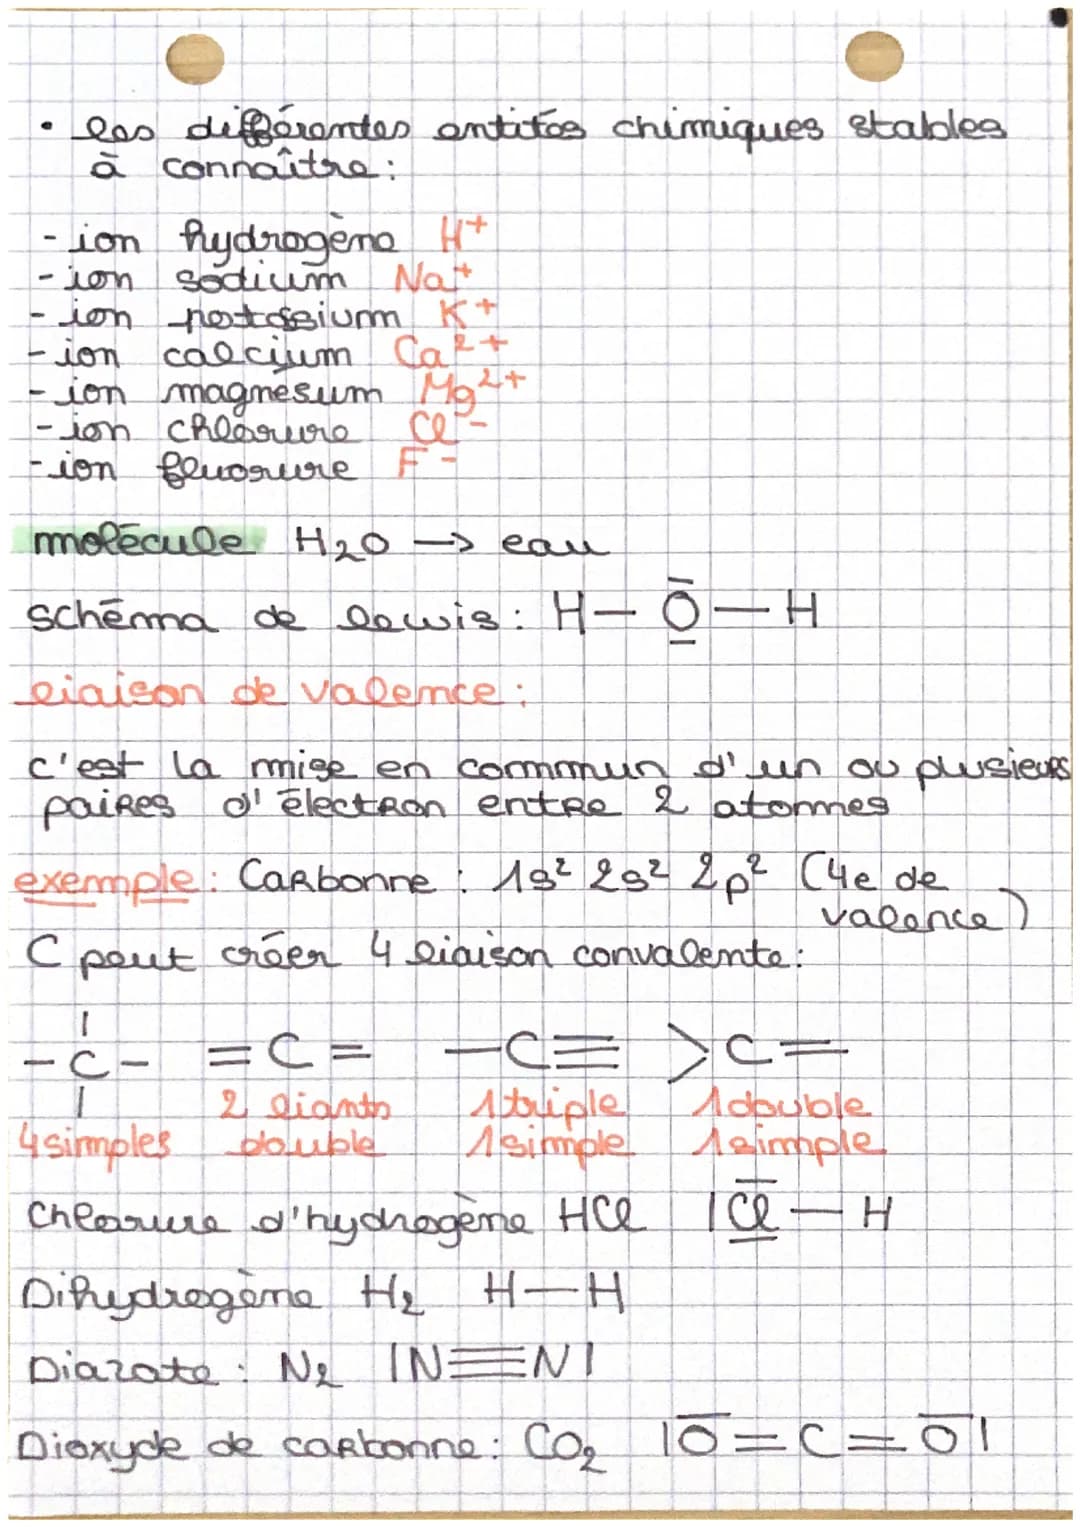 • les différentes entités chimiques stables
à connaître :
- ion hydrogène H⁺
- ion sodium Na⁺
- ion potassium K⁺
- ion calcium Ca²⁺
- ion magnesum Mg²⁺
- ion chlorure Cl⁻
- ion fluorure F⁻
molécule H₂O → eau
schéma de lewis : H — O̲̅ — H
liaison de valence :
c'est la mise en commun d'un ou plusieurs
paires d'électron entre 2 atomes
exemple : Carbonne : 1s² 2s² 2p² (4e de
valence)
C peut créer 4 liaison convalente :
- C - = C = — C ≡ > C =
4 simples 2 liants double 1 triple 1 simple 1 double 1 simple
Chlorure d'hydrogène HCl |C̲̅l̲̅ — H
Dihydrogène H₂ H — H
Diazote : N₂ |N ≡ N|
Dioxyde de carbonne : CO₂ |O̅ = C = O̅|